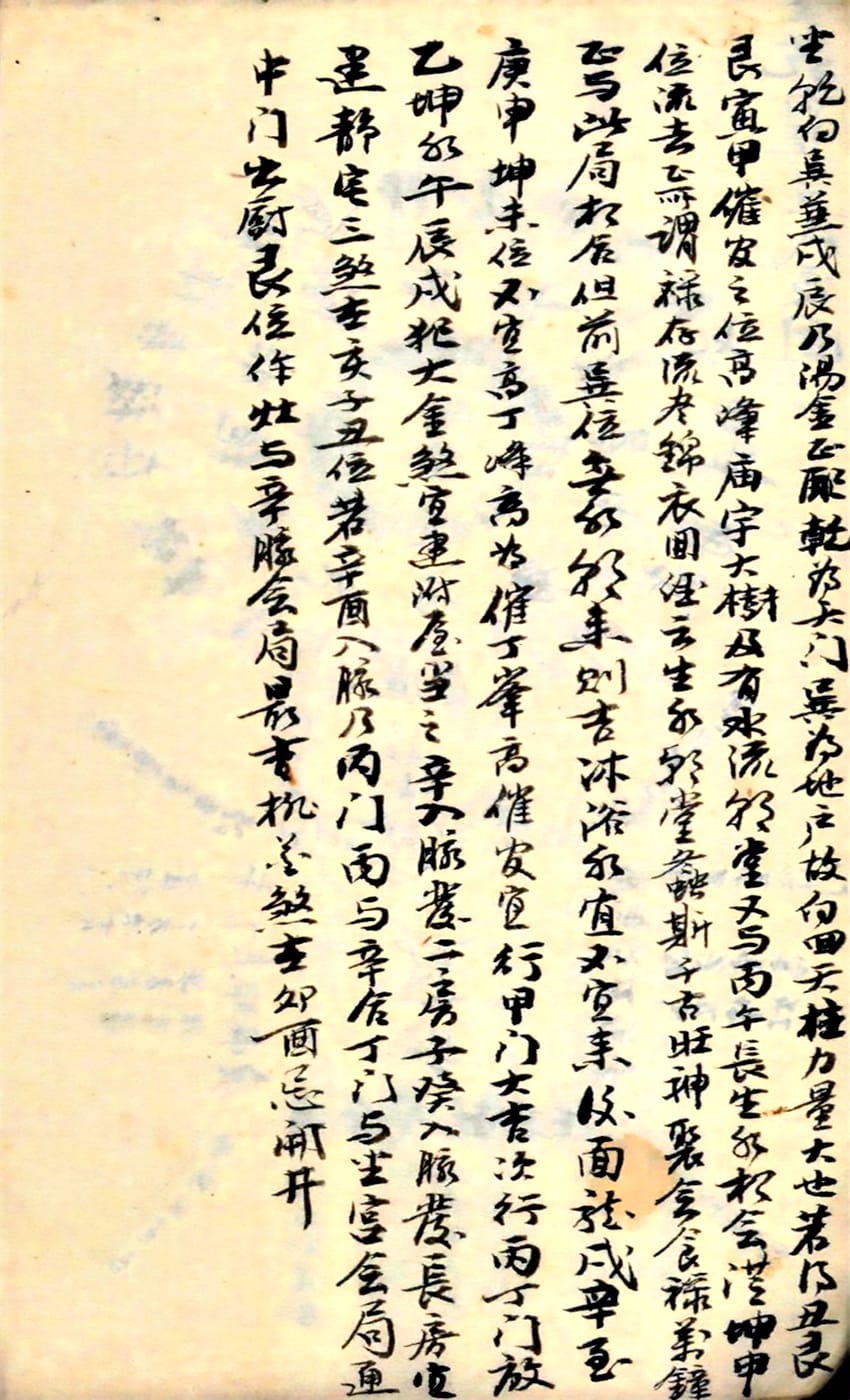 坐乾向巽兼戌辰乃湯金正配乾为天门巽为地户故向田天柱力量大也若得丑艮
艮寅甲催官之位高峰庙宇大樹及有水流朝堂又与丙午長生水相会從坤申
位流去正所謂禄存流尽錦衣囬經云生水朝堂螽斯千古旺神聚会食禄萬鐘
正与此局相合但前巽位要水朝来则吉沐浴水宜不宜来後面龙戌辛至
庚申坤未位不宜高丁峰高为催丁峯高催官宜行甲门大吉次行丙丁门放
乙坤水午辰戌犯大金煞宜建附屋当之辛入脉發二房子癸入脉發長房宜
建靜宅三煞在亥子丑位若辛酉入脉乃丙门丙与辛合丁门与坐宫会局通
中门出厨艮位作灶与辛脉会局最吉桃花煞在卯酉忌開井